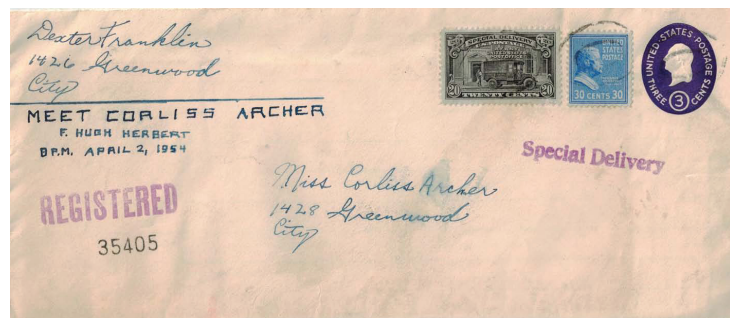 Dexter Franklin
1426 Greenwood
City
MEET CORLISS ARCHER
F. HUGH HERBERT
8 P.M. APRIL 2, 1954
REGISTERED
35405
SPECIAL DELIVERY
U.S. POSTAGE
POST OFFICE
20 TWENTY CENTS 20
UNITED STATES POSTAGE
30 CENTS 30
UNITED STATES POSTAGE
THREE 3 CENTS
Special Delivery
Miss Corliss Archer
1428 Greenwood
City